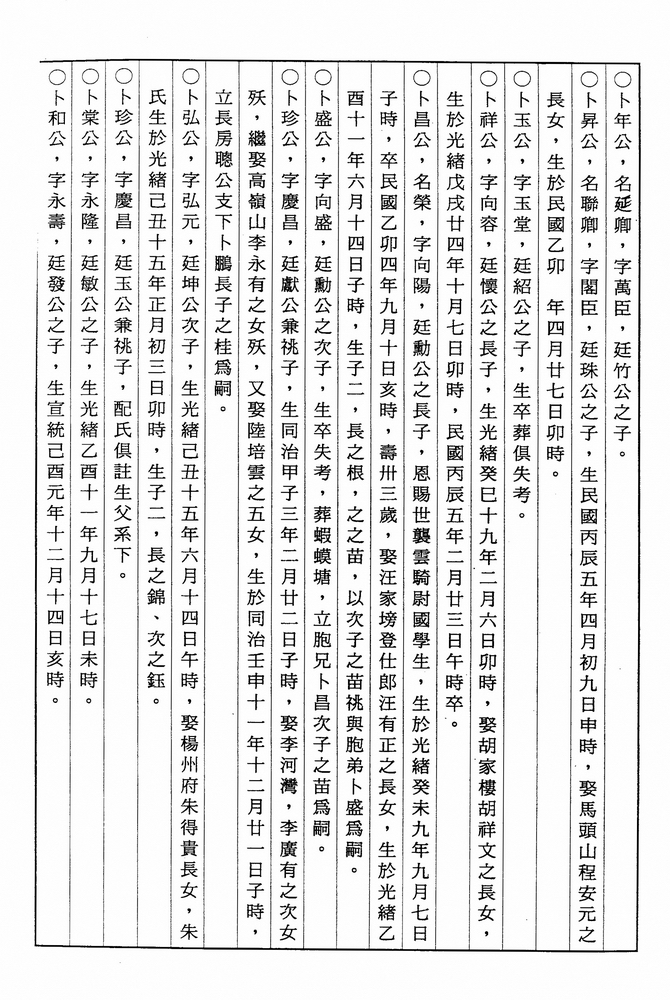 〇卜年公，名延卿，字萬臣，廷竹公之子。
〇卜昇公，名聯卿，字閣臣，廷珠公之子，生民國丙辰五年四月初九日申時，娶馬頭山程安元之
長女，生於民國乙卯　年四月廿七日卯時。
〇卜玉公，字玉堂，廷紹公之子，生卒葬俱失考。
〇卜祥公，字向容，廷懷公之長子，生光緒癸巳十九年二月六日卯時，娶胡家樓胡祥文之長女，
生於光緒戊戌廿四年十月七日卯時，民國丙辰五年二月廿三日午時卒。
〇卜昌公，名榮，字向陽，廷勳公之長子，恩賜世襲雲騎尉國學生，生於光緒癸未九年九月七日
子時，卒民國乙卯四年九月十日亥時，壽卅三歲，娶汪家塝登仕郎汪有正之長女，生於光緒乙
酉十一年六月十四日子時，生子二，長之根，之之苗，以次子之苗祧與胞弟卜盛為嗣。
〇卜盛公，字向盛，廷勳公之次子，生卒失考，葬蝦蟆塘，立胞兄卜昌次子之苗為嗣。
〇卜珍公，字慶昌，廷獻公兼祧子，生同治甲子三年二月廿二日子時，娶李河灣，李廣有之次女
殀，繼娶高嶺山李永有之女殀，又娶陸培雲之五女，生於同治壬申十一年十二月廿一日子時，
立長房聰公支下卜鵬長子之桂為嗣。
〇卜弘公，字弘元，廷坤公次子，生光緒己丑十五年六月十四日午時，娶楊州府朱得貴長女，朱
氏生於光緒己丑十五年正月初三日卯時，生子二，長之錦、次之鈺。
〇卜珍公，字慶昌，廷玉公兼祧子，配氏俱註生父系下。
〇卜棠公，字永隆，廷敏公之子，生光緒乙酉十一年九月十七日未時。
〇卜和公，字永壽，廷發公之子，生宣統己酉元年十二月十四日亥時。